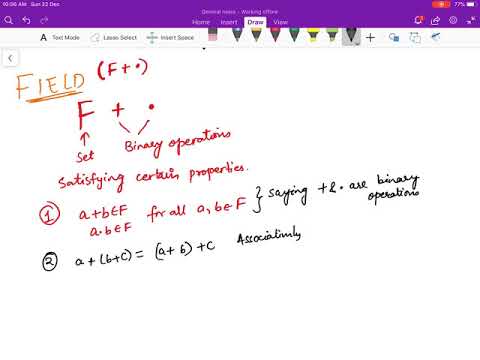 10:06 AM Sun 22 Dec
General notes - Working offline
77%
Insert Draw View
Text Mode Lasso Select Insert Space
FIELD (F + •)
F + •
Set Binary operations
Satisfying certain properties.
① a+b∈F for all a, b∈F } saying + & • are binary
a.b∈F operations
② a + (b+c) = (a + b) + c Associativity